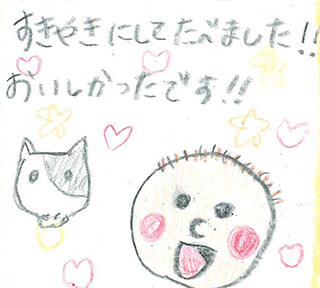 すきやきにしてたべました!!
おいしかったです!!